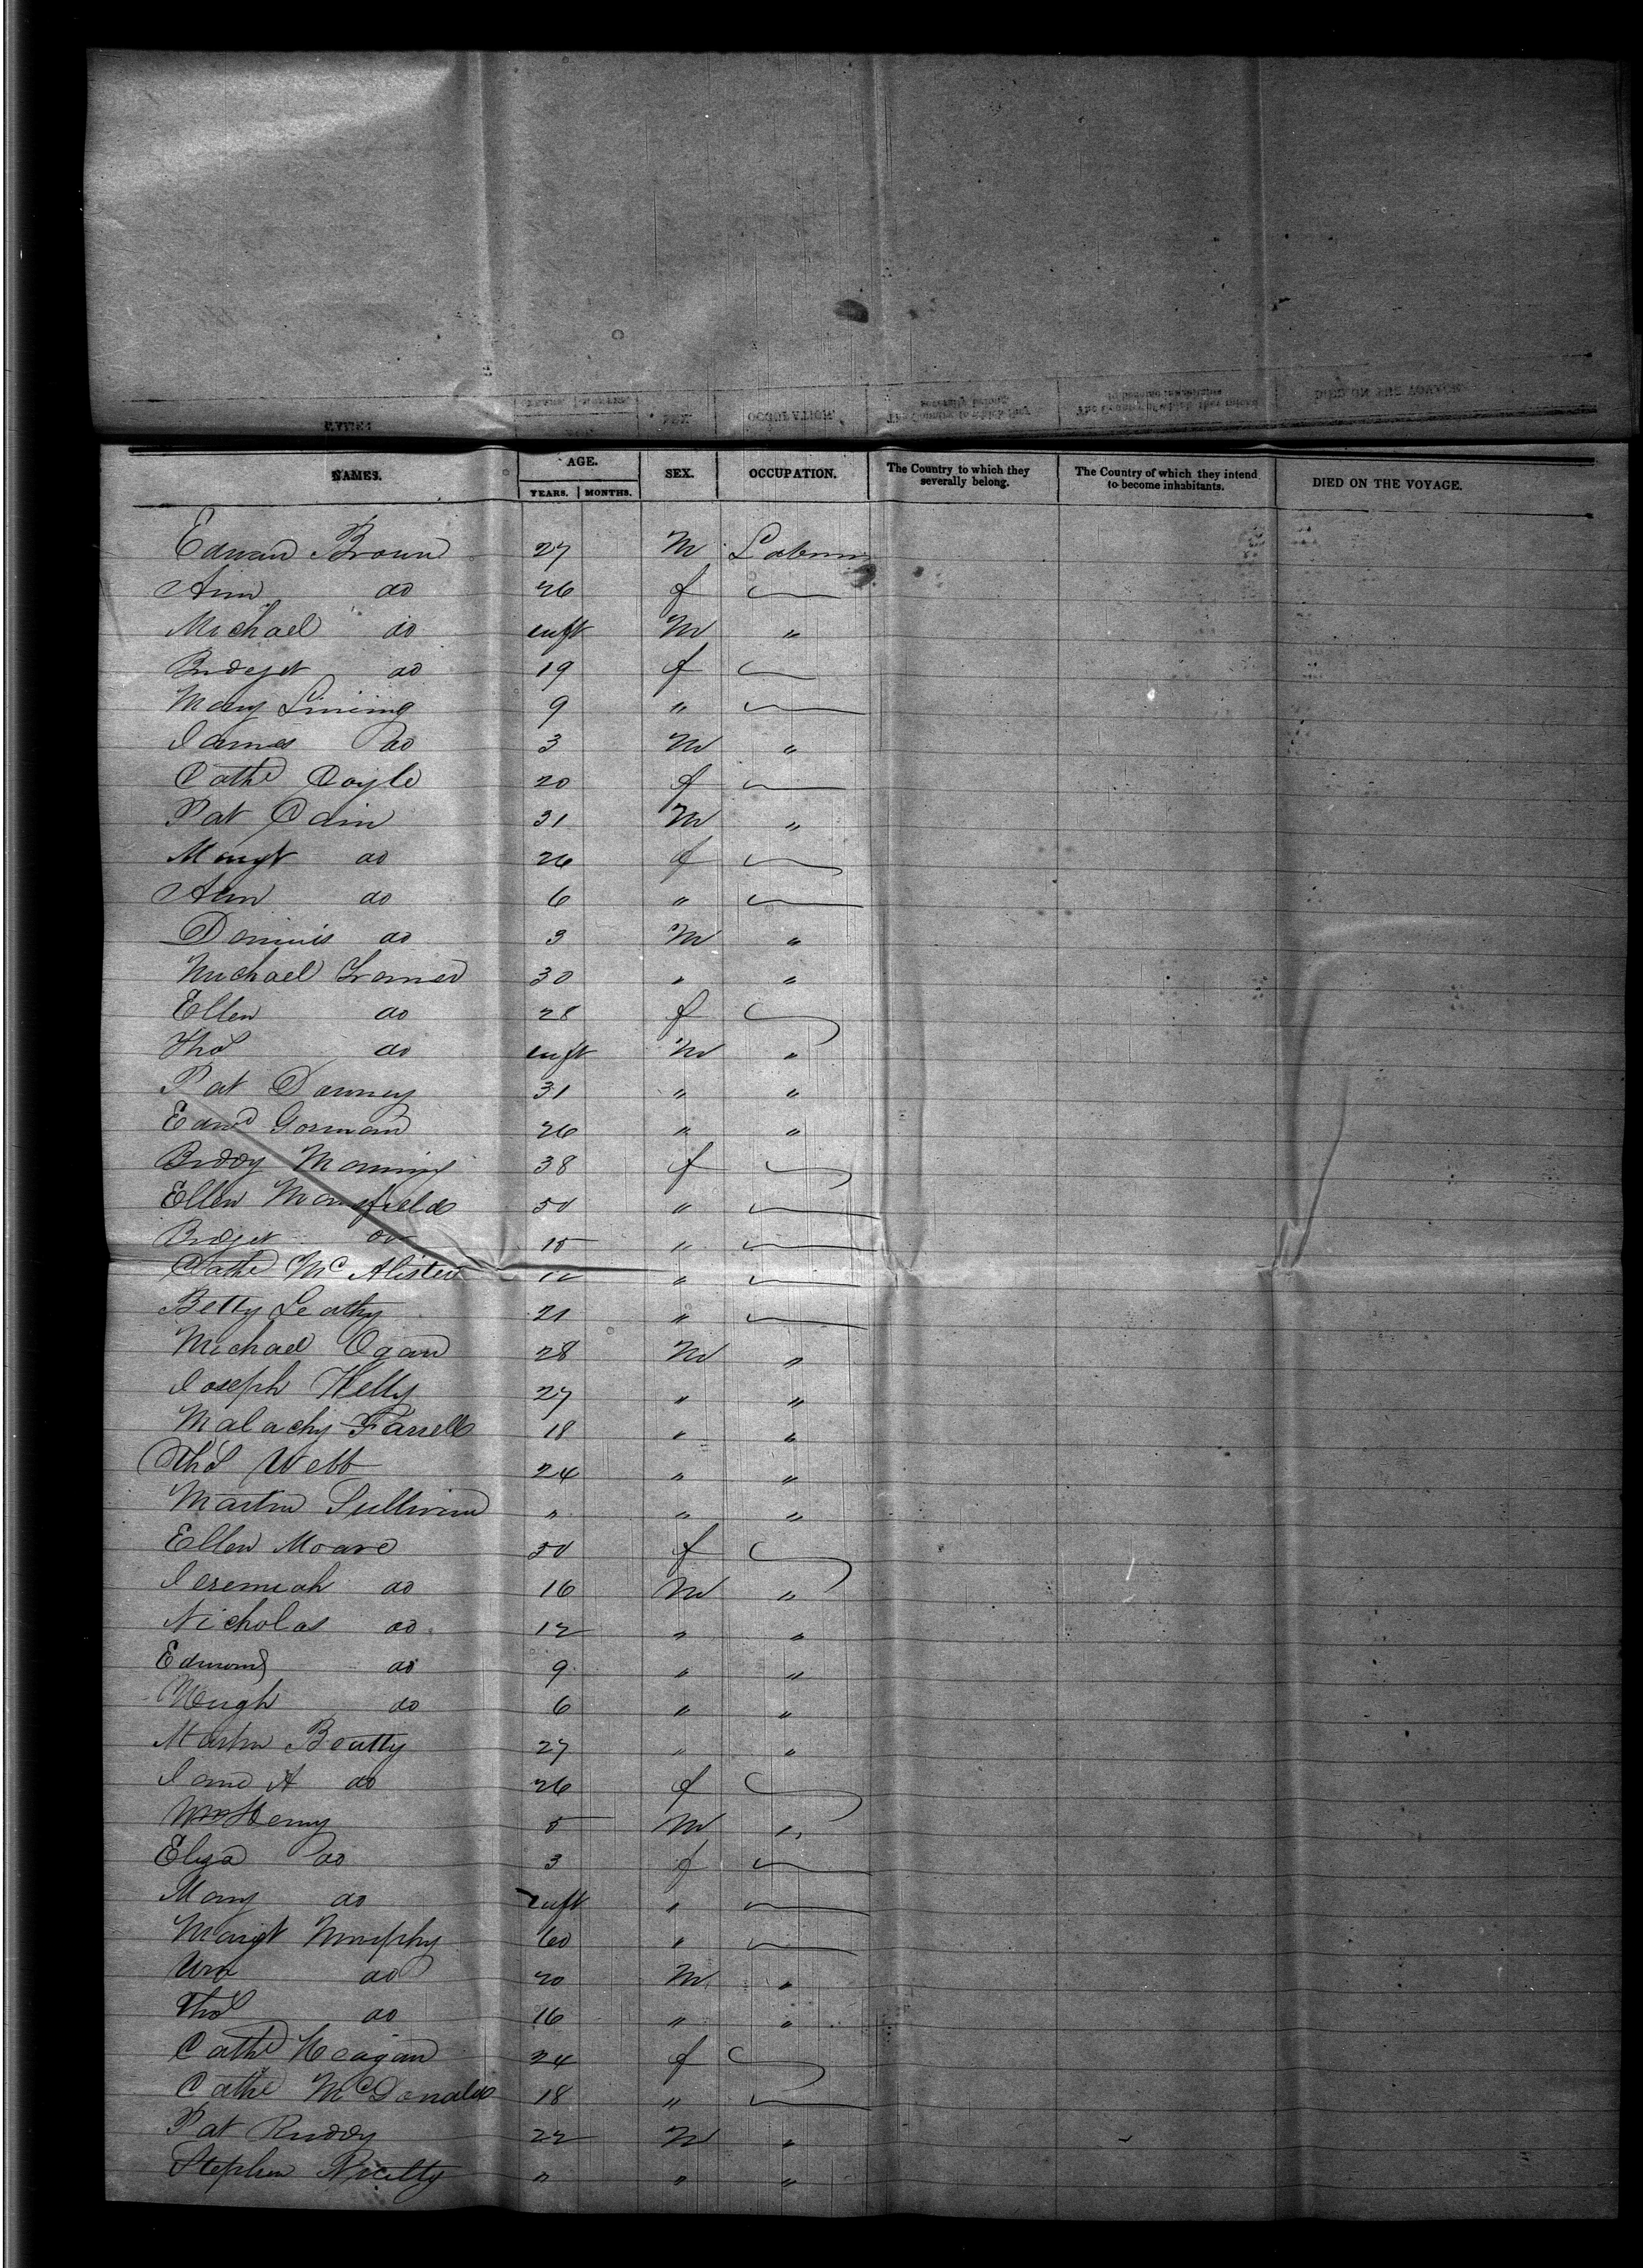 NAMES. AGE. SEX. OCCUPATION. The Country to which they severally belong. The Country of which they intend to become inhabitants. DIED ON THE VOYAGE.
YEARS. MONTHS.
Edward Brown 27 M Labourer
Ann do 26 f
Michael do inft M "
Bridget do 19 f
Mary 9 "
James do 3 M "
Cathe Coyle 20 f
Pat Cain 31 M "
Margt do 26 f
Ann do 6 "
Dennis do 3 M "
Michael 30 " "
Ellen do 28 f
Thos do inft M "
Pat Downey 31 " "
Edwd Gorman 26 " "
Biddy Manning 38 f
Ellen Mansfield 50 "
Bridget do 15 "
Cathe McAlister "
Betty Leathy 21 "
Michael Egan 28 M "
Joseph Kelly 27 " "
Malachy Farrell 18 " "
Thos Webb 24 " "
Martin Sullivan " " "
Ellen Moore 50 f
Jeremiah do 16 M "
Nicholas do 12 " "
Edmond do 9 " "
Hugh do 6 " "
Martin Beatty 27 " "
Jane A do 26 f
Wm Henry 5 M "
Eliza do 3 f
Mary do inft "
Margt Murphy 60 "
Wm do 20 M "
Thos do 16 " "
Cathe Heagan 24 f
Cathe McDonald 18 "
Pat Ruddy 22 M "
Stephen " " "